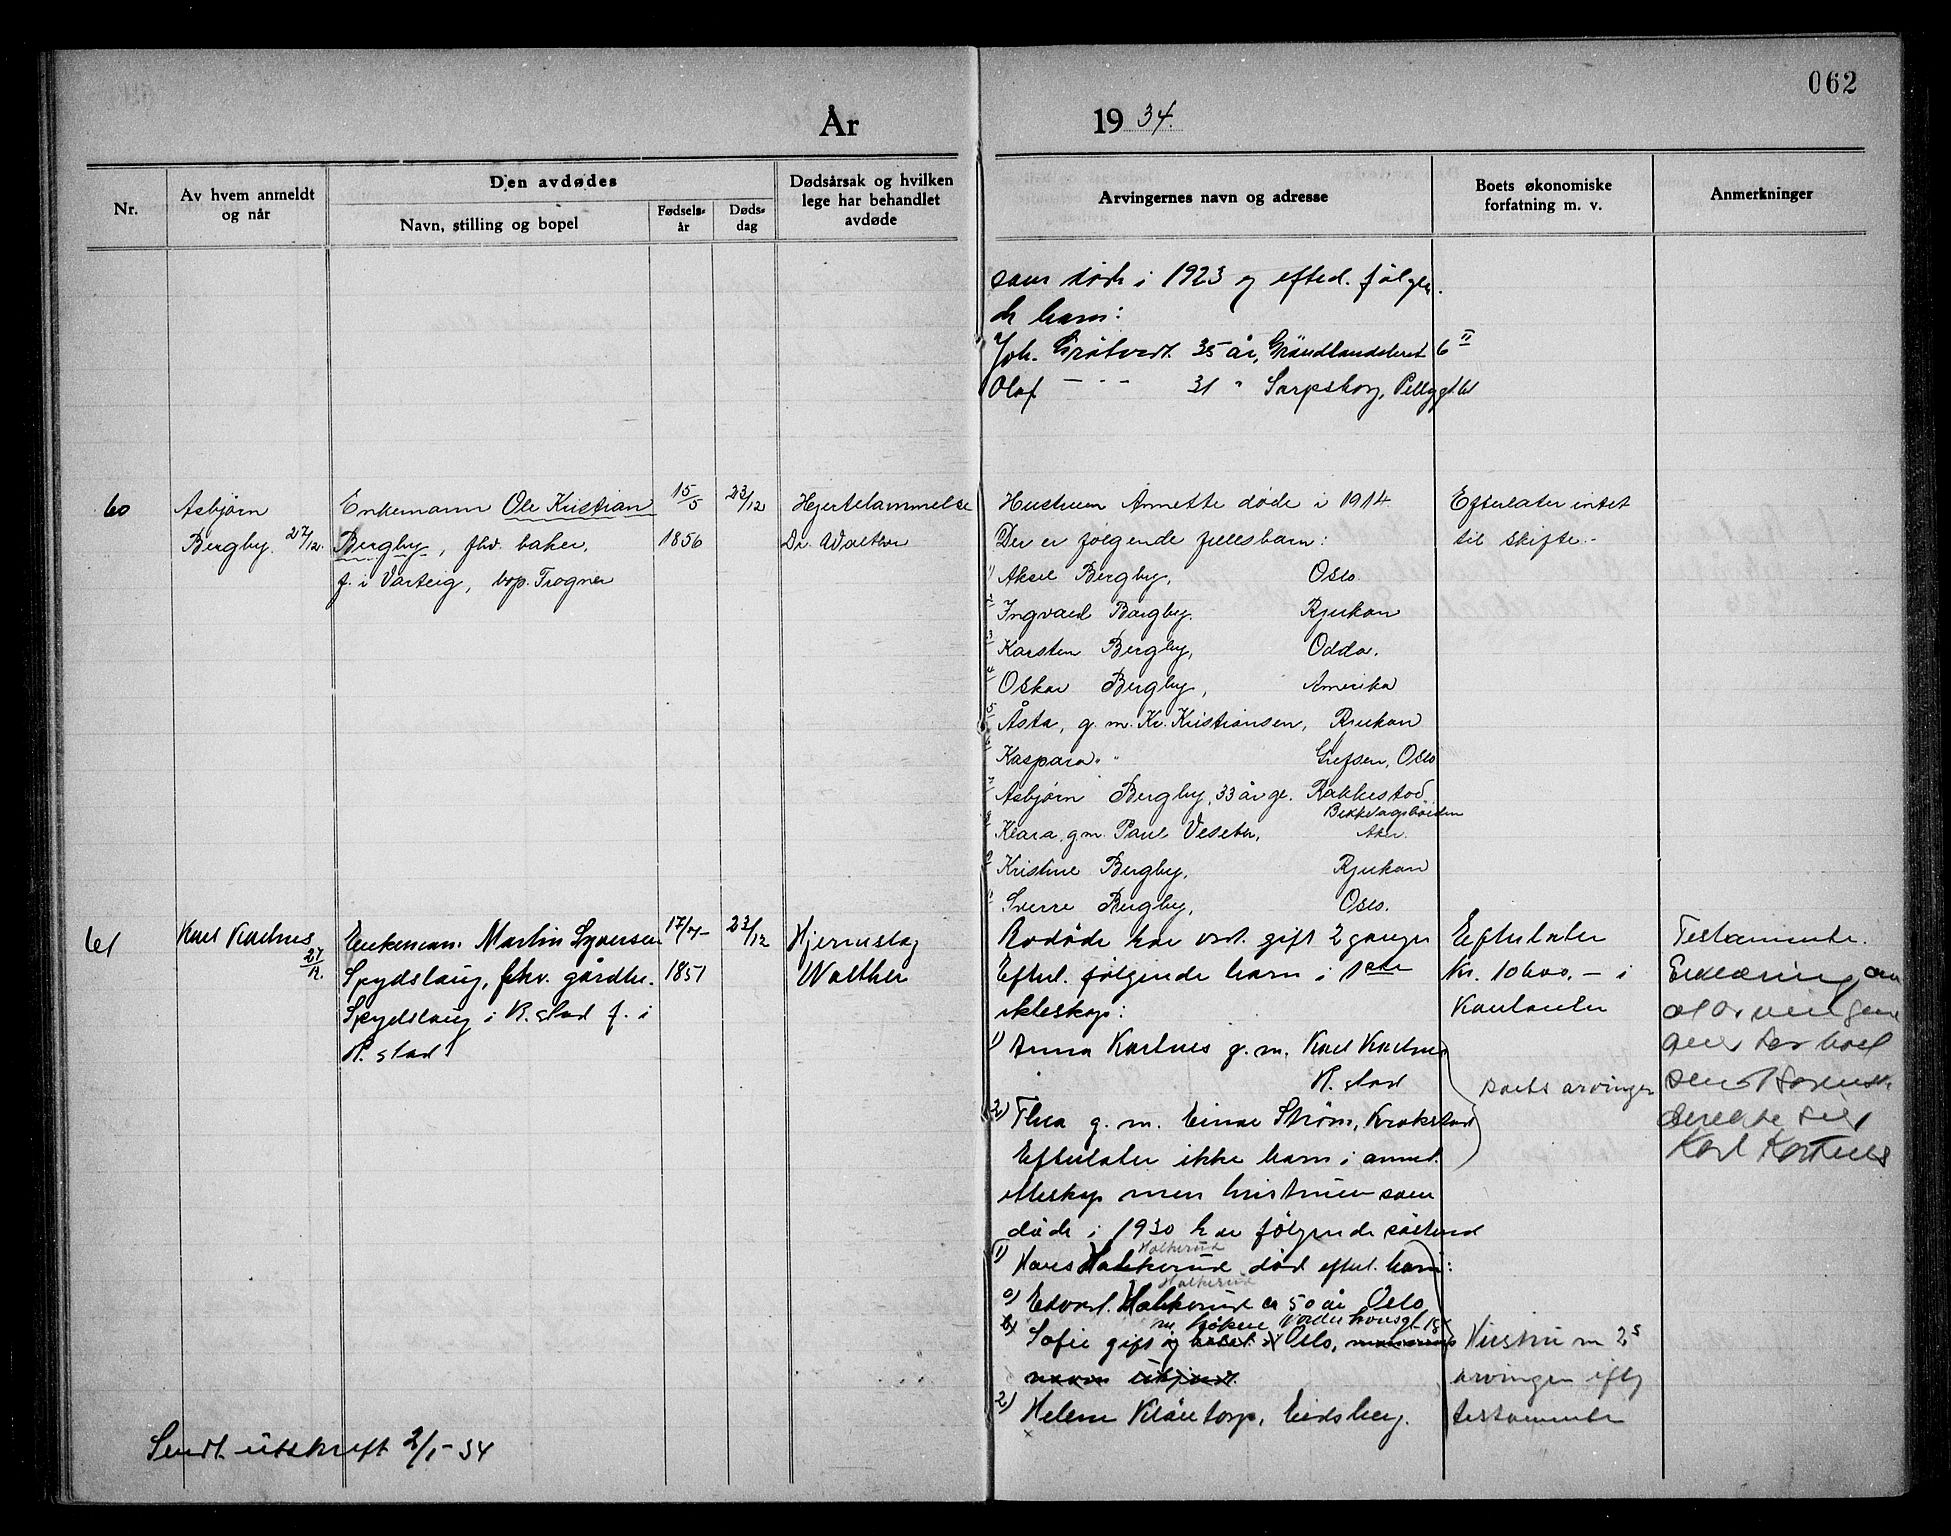 062
År 1934.
Nr.
Av hvem anmeldt og når
Den avdødes
Navn, stilling og bopel
Fødsels-år
Døds-dag
Dødsårsak og hvilken lege har behandlet avdøde
Arvingernes navn og adresse
Boets økonomiske forfatning m. v.
Anmerkninger
som døde i 1923 og efterl. følgen-
de barn:
Joh. Gråtvedt 35 år, 6 II
Olaf — " — 31 " Sarpsborg,
60
Asbjørn
Bergby. 27/12.
Enkemann Ole Kristian
Bergby, fhv. baker,
f. i Varteig, bop. Trogner
15/5
1856
23/12
Hjertelammelse
Dr. Walther
Hustruen Annette døde i 1914
Der er følgende fellesbarn:
1) Aksel Bergby, Oslo.
2 Ingvald Bergby. Rjukan
3 Karsten Bergby, Odda.
4 Oskar Bergby, Amerika
5 Åsta, g. m. Kr. Kristiansen, Rjukan
6 Kaspara " " Grefsen, Oslo
7 Asbjørn Bergby, 33 år g. Rakkestad
8 Klara, g.m. Paul Veseter, Bekkelagshøiden Aker.
9 Kristine Bergby, Rjukan
Sverre Bergby, Oslo.
Efterlater intet
til skifte.-
61
Karl Kartnes
27/12.
Enkeman. Martin Syversen
Spydslaug, fhv. gårdbr.
Spydslaug i R.stad f. i
R.stad
1851
23/12
Hjerneslag
Walther
Avdøde har vært gift 2 ganger
Efterl. følgende barn i 1ste
ekteskap:
1) Anna Kartnes g. m. Karl Kartnes
R.stad
2) Thea g. m. Einar Strøm, Krokstad
Efterlater ikke barn i annet
ekteskap men hustruen som
døde i 1930 har følgende
1) Hans Halkerud død efterl. barn:
Halkerud
a) Edvard Halkerud ca 50 år Oslo
Halkerud
b) Sofie gift Oslo,
navn ukjendt.
2) Helene Eidsberg.
Efterlater
Kr. 10600,- i
Kontanter
boets arvinger
Hustru n 2s
arvinger iflg
testamente
Testamente.
Erklæring om
at arvingene
Karl Kartnes
Sendt utskrift 2/1-34